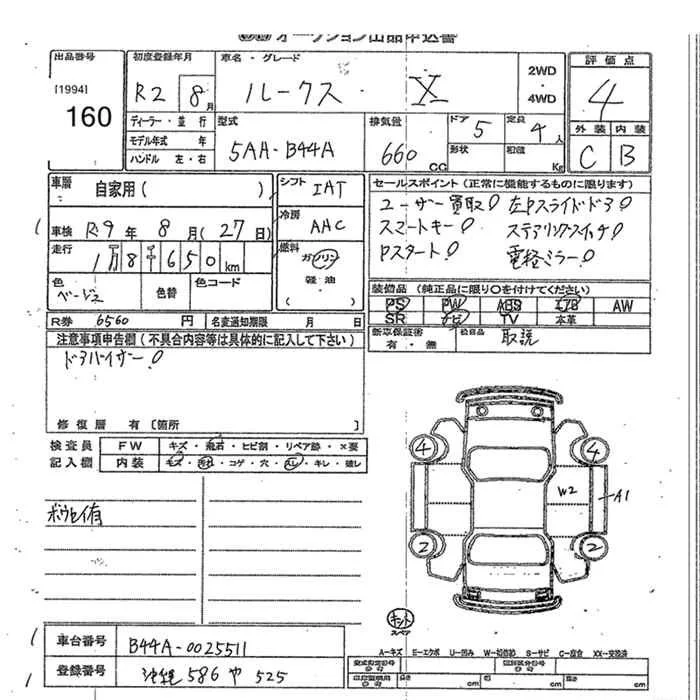 オークション出品申込書
出品番号 初度登録年月 車名・グレード 2WD・4WD 評価点
[1994] R2 8月 ルークス X 4
160
ディーラー・並行 型式 排気量 ドア 5 定員 4人 外装 内装
モデル年式 年 5AA-B44A 660CC 形状 積載 Kg C B
ハンドル 左・右
車歴 自家用( ) シフト IAT セールスポイント(正常に機能するものに限ります)
ユーザー買取! 左Pスライドドア!
車検 R9年 8月(27日) 冷房 AAC スマートキー! ステアリングスイッチ!
走行 1万8千650km 燃料 ガソリン Pスタート! 電格ミラー!
軽油
( )
色 ベージュ 色替 色コード 装備品(純正品に限り○を付けてください)
PS PW ABS エアB AW
R券 6560円 名変通知期限 月 日 SR ナビ TV 本革
注意事項申告欄(不具合内容等は具体的に記入して下さい) 新車保証書 有・無 欠品 取説
ドアバイザー!
修復歴 有〔箇所 〕
検査員 FW キズ・飛石・ヒビ割・リペア跡・×要
記入欄 内装 キズ・汚れ・コゲ・穴・スレ・キレ・破レ
4 4
W2 A1
ボウセイ有
2 2
キット
スペア
車台番号 B44A-0025511
A-キズ E-エクボ U-凹み W-補修跡 S-サビ C-腐食 XX-交換済
登録番号 沖縄 586 や 525
長さ cm 幅 cm 高さ cm